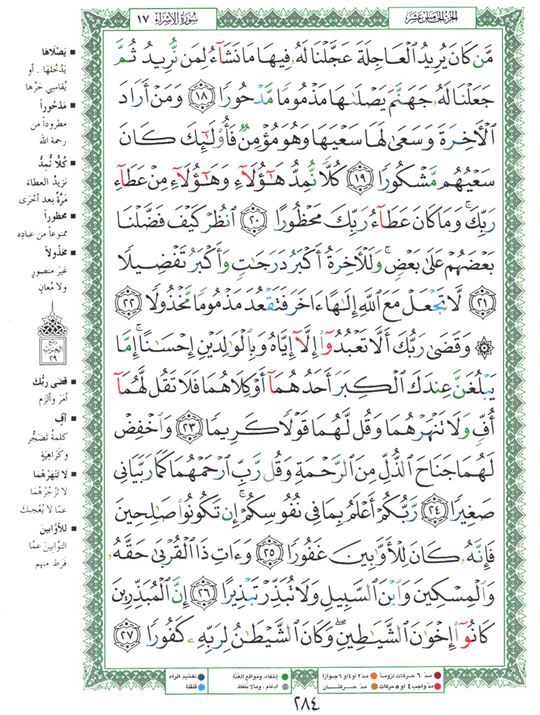 سُورَةُ الإِسْرَاء ١٧
الجزء الخامس عشر
مَّن كَانَ يُرِيدُ ٱلْعَاجِلَةَ عَجَّلْنَا لَهُۥ فِيهَا مَا نَشَآءُ لِمَن نُّرِيدُ ثُمَّ
جَعَلْنَا لَهُۥ جَهَنَّمَ يَصْلَىٰهَا مَذْمُومًا مَّدْحُورًا ١٨ وَمَنْ أَرَادَ
ٱلْأَخِرَةَ وَسَعَىٰ لَهَا سَعْيَهَا وَهُوَ مُؤْمِنٌ فَأُو۟لَـٰٓئِكَ كَانَ
سَعْيُهُم مَّشْكُورًا ١٩ كُلًّا نُّمِدُّ هَـٰٓؤُلَآءِ وَهَـٰٓؤُلَآءِ مِنْ عَطَآءِ
رَبِّكَ ۚ وَمَا كَانَ عَطَآءُ رَبِّكَ مَحْظُورًا ٢٠ ٱنظُرْ كَيْفَ فَضَّلْنَا
بَعْضَهُمْ عَلَىٰ بَعْضٍ ۚ وَلَلْأَخِرَةُ أَكْبَرُ دَرَجَـٰتٍ وَأَكْبَرُ تَفْضِيلًا
٢١ لَّا تَجْعَلْ مَعَ ٱللَّهِ إِلَـٰهًا ءَاخَرَ فَتَقْعُدَ مَذْمُومًا مَّخْذُولًا ٢٢
۞ وَقَضَىٰ رَبُّكَ أَلَّا تَعْبُدُوٓا۟ إِلَّآ إِيَّاهُ وَبِٱلْوَٰلِدَيْنِ إِحْسَـٰنًا ۚ إِمَّا
يَبْلُغَنَّ عِندَكَ ٱلْكِبَرَ أَحَدُهُمَآ أَوْ كِلَاهُمَا فَلَا تَقُل لَّهُمَآ
أُفٍّ وَلَا تَنْهَرْهُمَا وَقُل لَّهُمَا قَوْلًا كَرِيمًا ٢٣ وَٱخْفِضْ
لَهُمَا جَنَاحَ ٱلذُّلِّ مِنَ ٱلرَّحْمَةِ وَقُل رَّبِّ ٱرْحَمْهُمَا كَمَا رَبَّيَانِى
صَغِيرًا ٢٤ رَّبُّكُمْ أَعْلَمُ بِمَا فِى نُفُوسِكُمْ ۚ إِن تَكُونُوا۟ صَـٰلِحِينَ
فَإِنَّهُۥ كَانَ لِلْأَوَّٰبِينَ غَفُورًا ٢٥ وَءَاتِ ذَا ٱلْقُرْبَىٰ حَقَّهُۥ
وَٱلْمِسْكِينَ وَٱبْنَ ٱلسَّبِيلِ وَلَا تُبَذِّرْ تَبْذِيرًا ٢٦ إِنَّ ٱلْمُبَذِّرِينَ
كَانُوٓا۟ إِخْوَٰنَ ٱلشَّيَـٰطِينِ ۖ وَكَانَ ٱلشَّيْطَـٰنُ لِرَبِّهِۦ كَفُورًا ٢٧
يَصْلَاهَا
يَدْخُلُهَا . أو
يُقَاسِي حَرَّها
مَدْحُوراً
مطروداً من
رحمة الله
كُلًّا نُّمِدُّ
نَزِيدُ العطاءَ
مَرَّةً بعد أخرى
مَحْظُوراً
ممنوعاً من عباده
مَخْذُولاً
غيرَ منصورٍ
ولا مُعانٍ
ربع
الحزب
٢٩
قَضَى رَبُّك
أمَرَ وألزَمَ
أُفٍّ
كلمةُ تَضَجُّر
وكراهيَةٍ
لا تَنْهَرْهُمَا
لا تَزْجُرْهُمَا
عمّا لا يُعْجِبكَ
لِلأوَّابين
التوَّابينَ عمَّا
فَرَط منهم
مدّ ٦ حركات لزوماً
مدّ ٢ أو ٤ أو ٦ جوازاً
إخفاء، ومواقع الغُنَّة
تفخيم الراء
مدّ واجب ٤ أو ٥ حركات
مدّ حركتان
ادغام ، وما لا يُلفَظ
قلقلة
٢٨٤